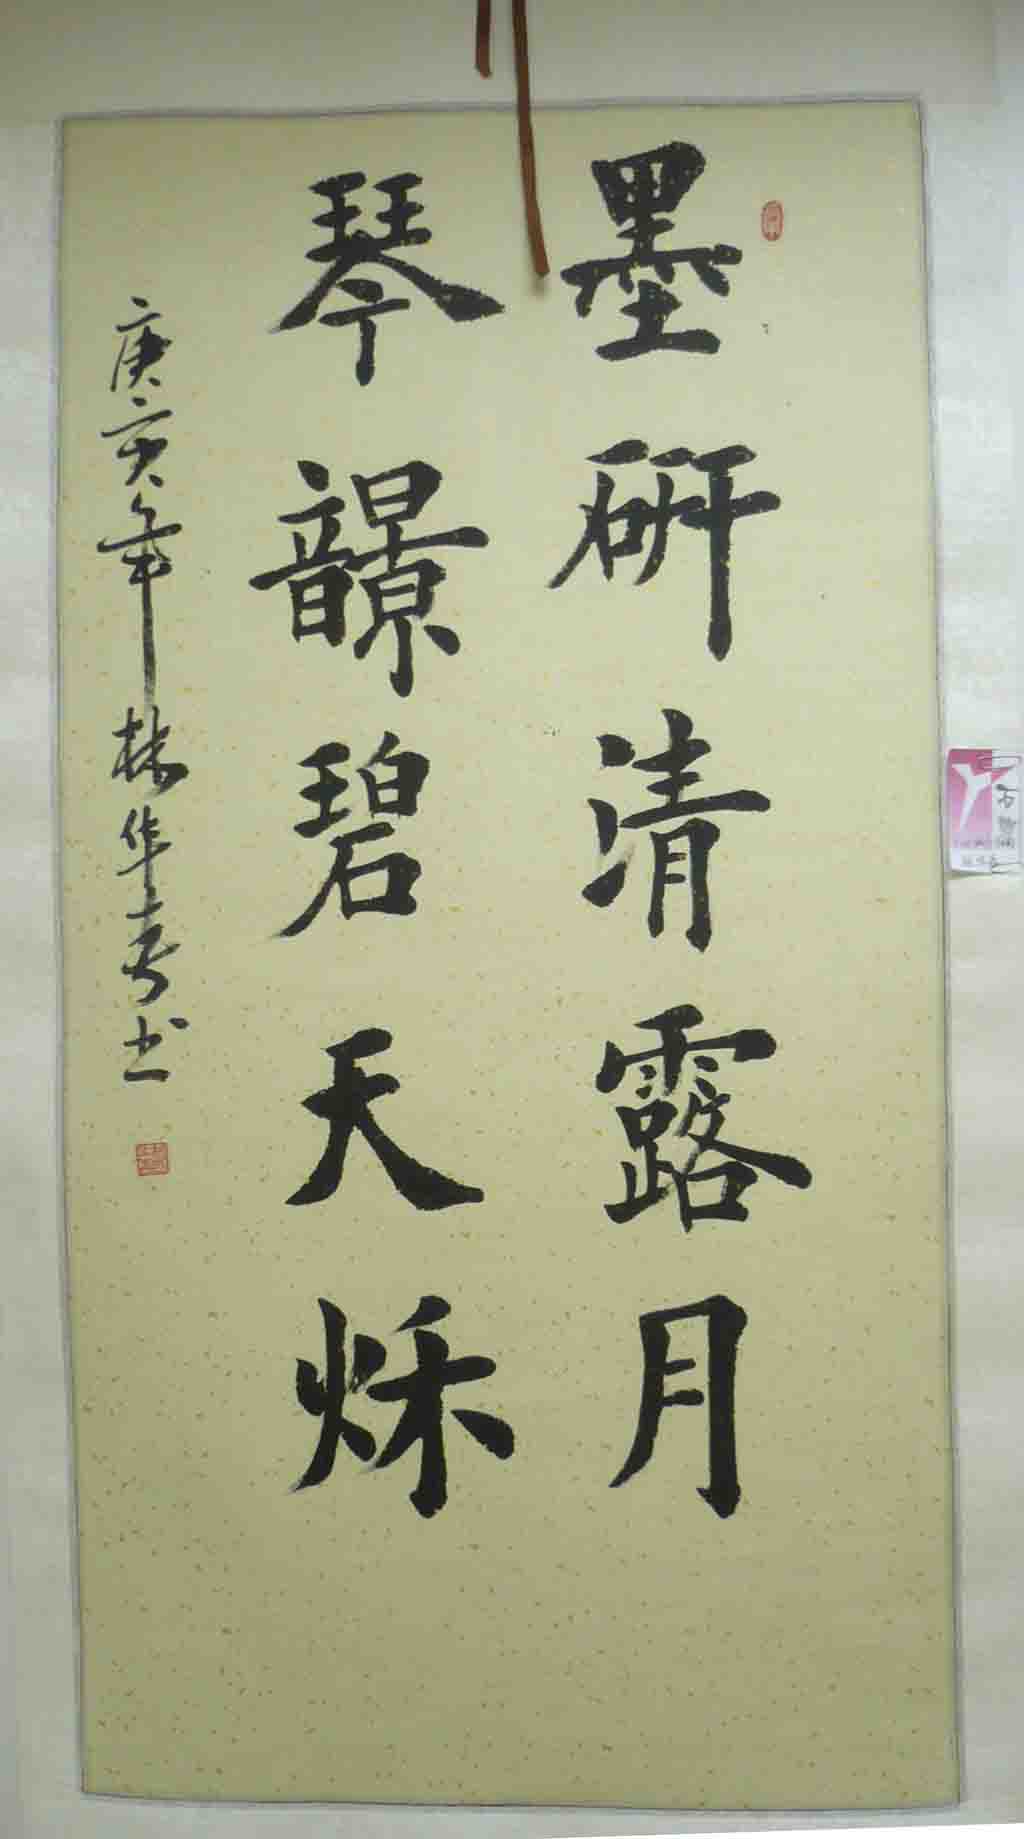 墨研清露月
琴韻碧天秌
庚寅年林华春书